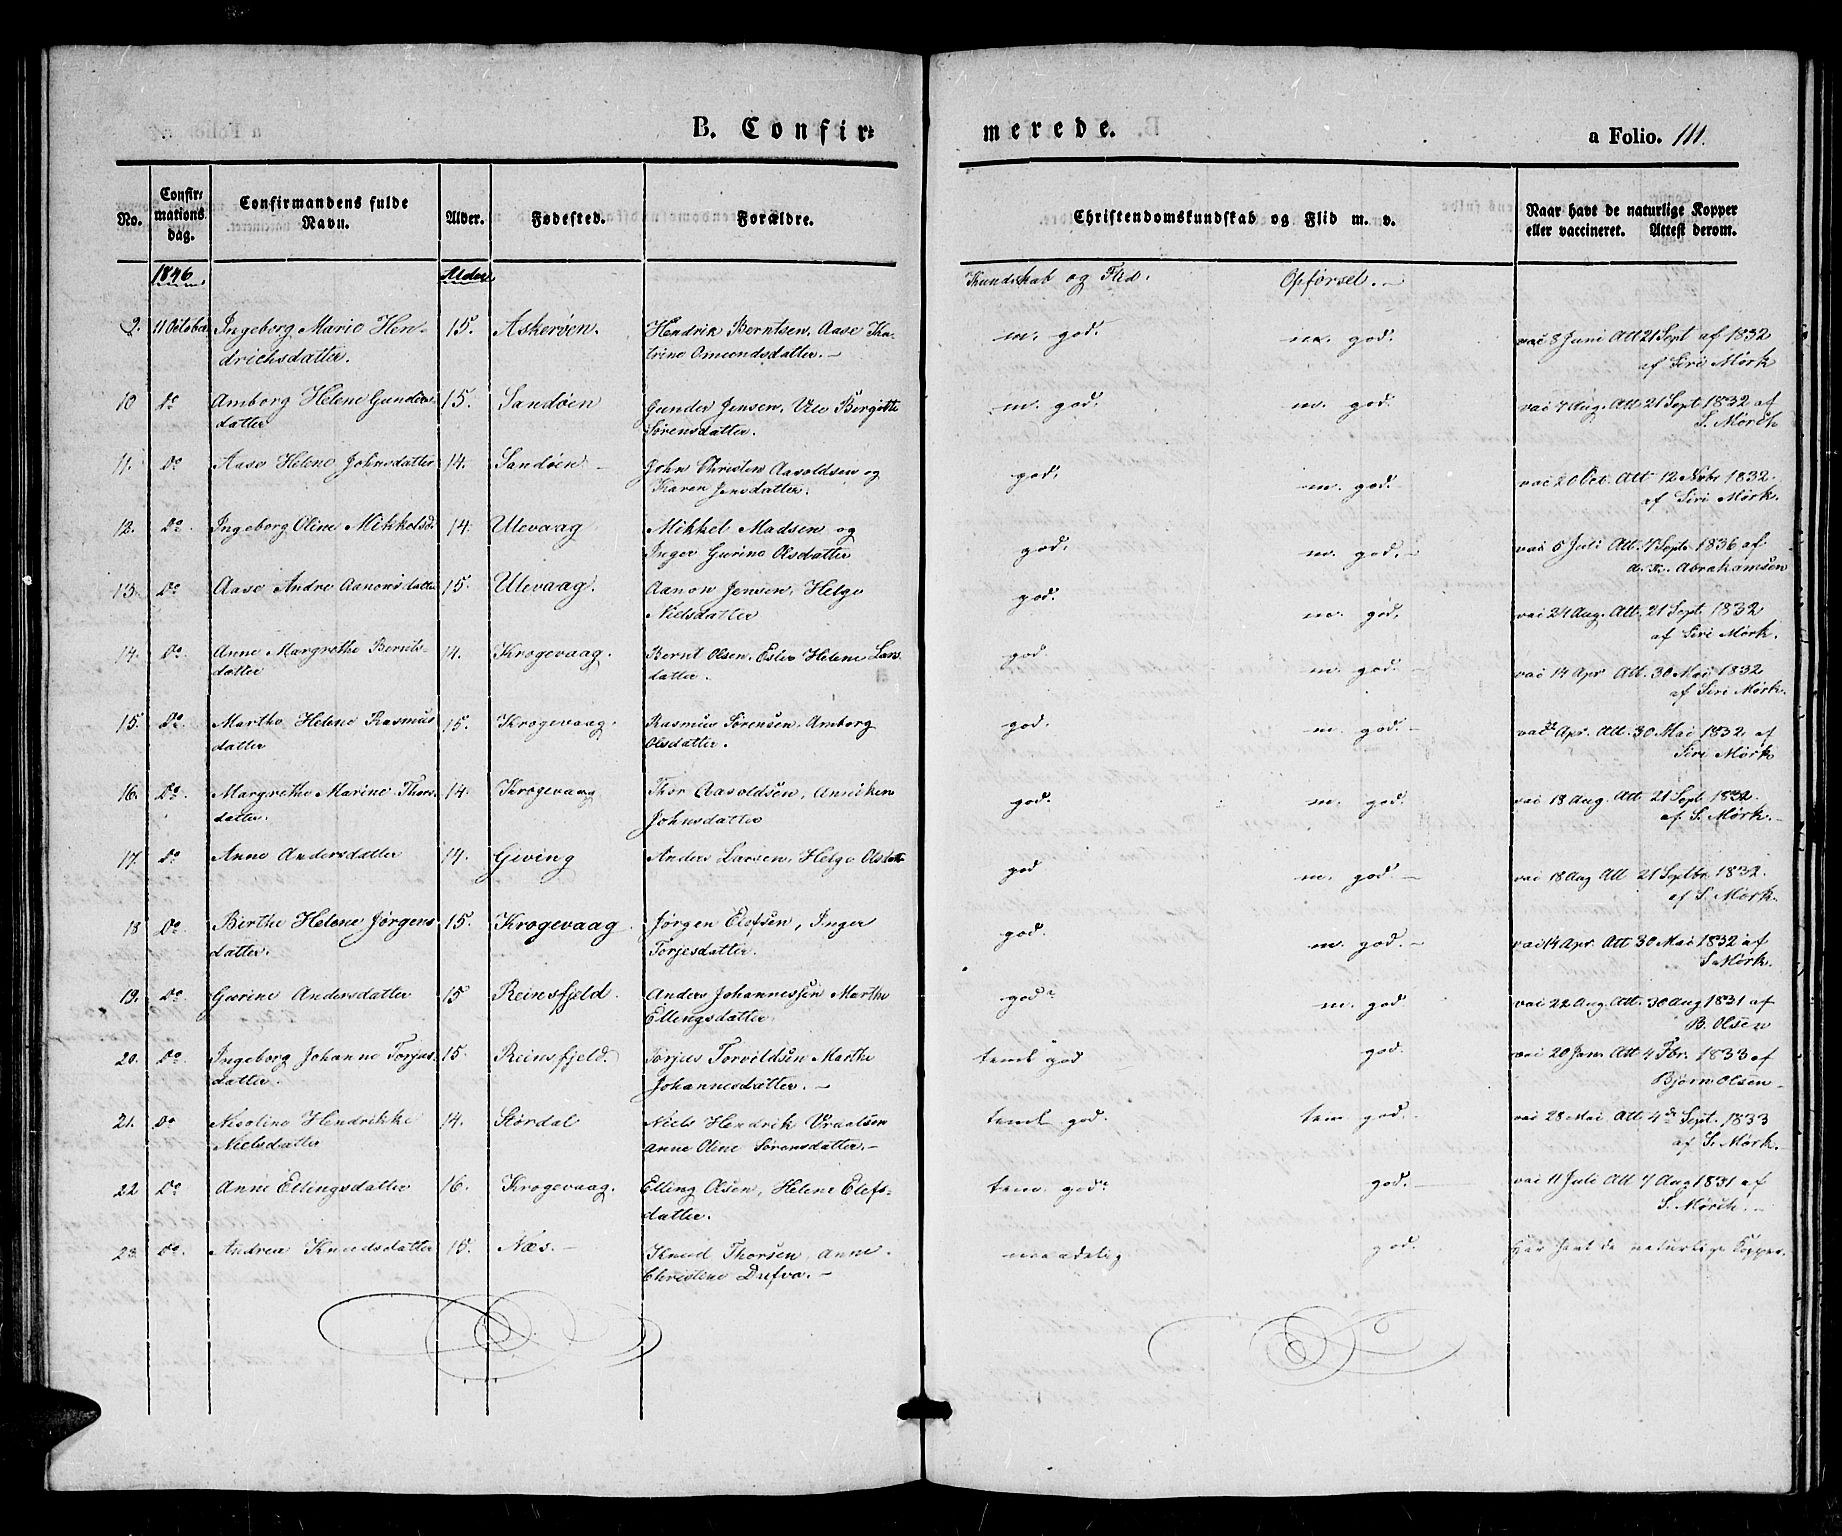 B. Confir-
merede.
a Folio. 111.
No.
Confir-
mations
dag.
Confirmandens fulde
Navn.
Alder.
Fødested.
Forældre.
Christendomskundskab og Flid m. v.
Naar havt de naturlige Kopper
eller vaccineret. Attest derom.
1846
Alder
Kundskab og Flid.
Opførsel.
9. 11 October Ingeborg Marie Hen- 15. Askerøen. Hendrik Berntsen, Aase Ka- m. god. m. god. vac 8 Juni Att 21 Sept af 1832
drichsdatter. trine Omundsdatter. af Siri Mørk
10 Do Amborg Helene Gunders 15. Sandøen Gunder Jensen, Bergitte m. god. m. god. vac 7 Aug. Att 21 Sept 1832 af
datter Sørensdatter. S. Mørch
11. Do Aase Helene Johnsdatter 14. Sandøen John Christen Aavoldsen og god. m. god. vac 20 Oct. Att 12 Novbr 1832.
Karen Jensdatter. af Siri Mørk.
12. Do Ingeborg Oline Mikkelsd 14. Ulevaag Mikkel Madsen og god. m. god. vac 5 Juli Att. 7 Sept. 1836 af
Inger Gurine Olsdatter Abrahamsen
13. Do Aase Andrea Aanonsdatter 15. Ulevaag. Aanon Jensen, Helge god. m. god. vac 24 Aug. Att. 21 Sept. 1832
Nielsdatter af Siri Mørk.
14. Do Anne Margrethe Bernts- 14. Krogevaag. Bernt Olsen, Helene Lars god m. god. vac 14 Apr Att. 30 Mai 1832
datter datter. af Siri Mørk.
15. Do Marthe Helene Rasmus 15. Krogevaag. Rasmus Sørensen, Amborg god. m. god. vac Apr. Att. 30 Mai 1832 af
datter Olsdatter. Siri Mørk
16. Do Margrethe Marine Thors 14. Krogevaag Thor Aavoldsen, Anniken god. m. god. vac 18 Aug. Att 21 Sept. 1832.
datter. Johnsdatter af S. Mørk.
17. Do Anne Andersdatter 14. Gieving Anders Larsen, Helge Olsdatt god m. god. vac 18 Aug Att 21 Septbr 1832.
af S. Mørk.
18 Do Birthe Helene Jørgens 15. Krogevaag Jørgen Elefsen, Inger god. m. god. vac 14 Apr. Att 30 Mai 1832 af
datter. Torjesdatter. S Mørk.
19. Do Gurine Andersdatter 15 Reinsfjeld. Anders Johannessen Marthe god m. god vac 22 Aug. Att. 30 Aug 1831 af
Ellingsdatter B. Olsen
20. Do Ingeborg Johanne Torjus 15. Reinsfjeld. Torjus Torvildsen Marthe teml god god. vac 20 Jan. Att 4 Fbr. 1833 af
datter. Johannesdatter. Bjørn Olsen
21. Do Nicoline Hendrikke 14. Størdal Niels Hendrik Vraalsen teml god. tem god. vac 28 Mai Att 4de Sept. 1833
Nielsdatter Anne Oline Sørensdatter. af S. Mørk.
22 Do Anne Ellingsdatter 16. Krogevaag. Elling Olsen, Helene Elefs- tem. god. god. vac 11 Juli Att 7 Aug 1831 af
datter. S. Mørch.
23. Do Andrea Knudsdatter 15. Næs. Knud Thorsen, Anne maadelig god. har havt de naturlige Kopper.
Christine Dufva.